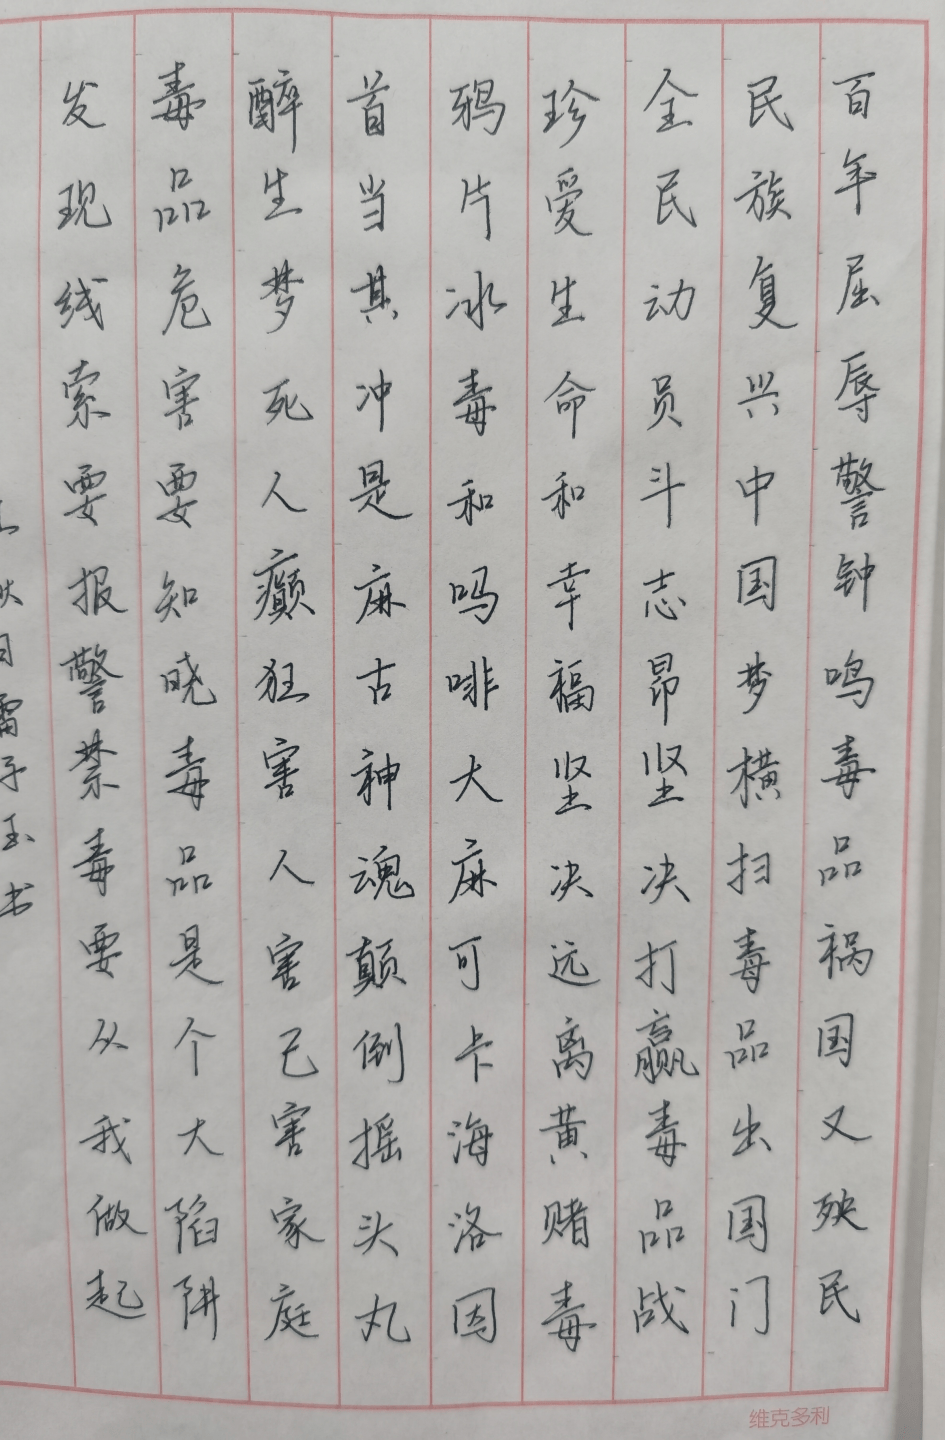 百年屈辱警钟鸣毒品祸国又殃民
民族复兴中国梦横扫毒品出国门
全民动员斗志昂坚决打赢毒品战
珍爱生命和幸福坚决远离黄赌毒
鸦片冰毒和吗啡大麻可卡海洛因
首当其冲是麻古神魂颠倒摇头丸
醉生梦死人癫狂害人害己害家庭
毒品危害要知晓毒品是个大陷阱
发现线索要报警禁毒要从我做起
雷子玉书
维克多利